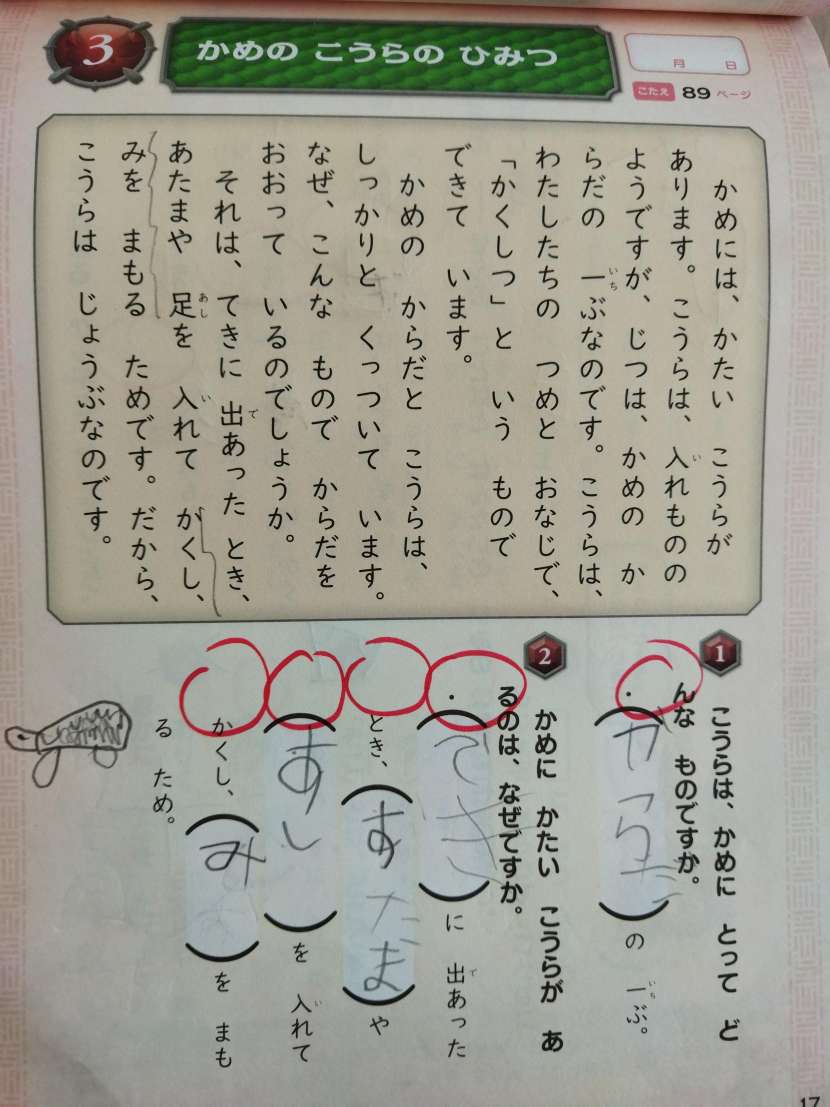 3
かめの こうらの ひみつ
月 日
こたえ 89 ページ
かめには、かたい こうらが
あります。こうらは、入れものの
ようですが、じつは、かめの か
らだの 一ぶなのです。こうらは、
わたしたちの つめと おなじで、
「かくしつ」と いう もので
できて います。
かめの からだと こうらは、
しっかりと くっついて います。
なぜ、こんな もので からだを
おおって いるのでしょうか。
それは、てきに 出あった とき、
あたまや 足を 入れて かくし、
みを まもる ためです。だから、
こうらは じょうぶなのです。
1
こうらは、かめに とって ど
んな ものですか。
からだ の 一ぶ。
2
かめに かたい こうらが あ
るのは、なぜですか。
てき に 出あった
とき、 あたま や
あし を 入れて
かくし、 み を まも
る ため。
17